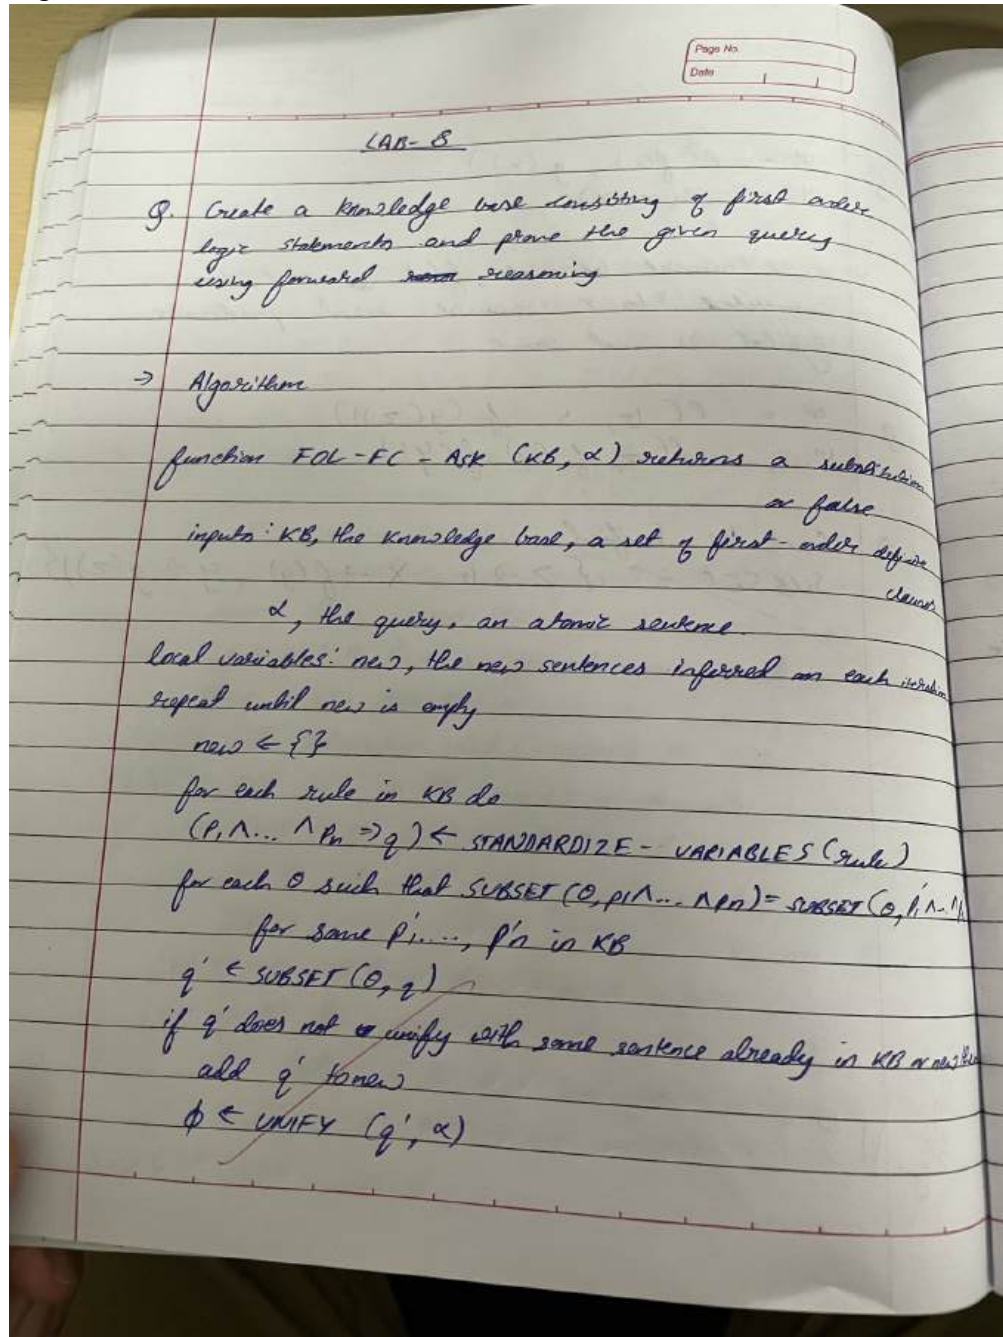 Page No.
Date
LAB- 8
Q. Create a knowledge base consisting of first order
logic statements and prove the given query
using forward reasoning
→ Algorithm
function FOL-FC-ASK (KB, α) returns a substitution
or false
inputs: KB, the knowledge base, a set of first-order definite
clauses
α, the query, an atomic sentence.
local variables: new, the new sentences inferred on each iteration
repeat until new is empty
new ← {}
for each rule in KB do
(P1 ∧... ∧ Pn => q) ← STANDARDIZE - VARIABLES (rule)
for each θ such that SUBSET (θ, p1 ∧... ∧ pn) = SUBSET (θ, p'1 ∧..
for some p'1...., p'n in KB
q' ← SUBSET (θ, q)
if q' does not unify with some sentence already in KB or new then
add q' to new
φ ← UNIFY (q', α)